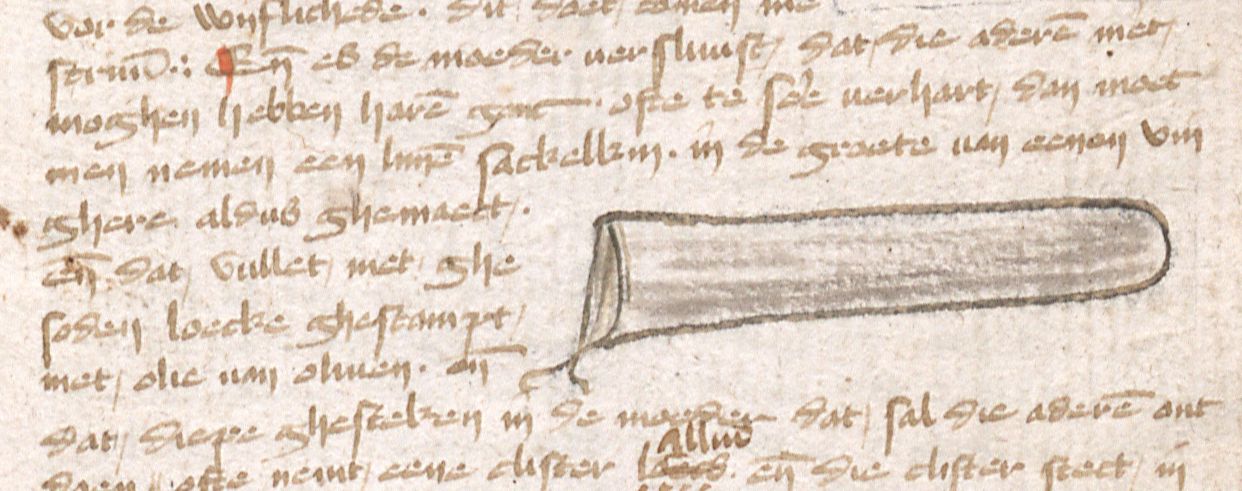 vor de wijflichede. dit doet comen me
striuū. Eñ es de moeder versluust, dat die aderē niet,
moghen hebben harē ganc. ofte te seʾe verhart, dan moet
men nemen een linē sackelkin. in de groote van eenen vin
ghere aldus ghemaect.
eñ dat, vullet, met, ghe
soden loecke ghestampt,
met, olie van oliven. eñ
dat, diepe ghesteken in de moeder dat, sal die aderē ont
allun
doen, ofte nemt, eene clister eñ die clister stect, in